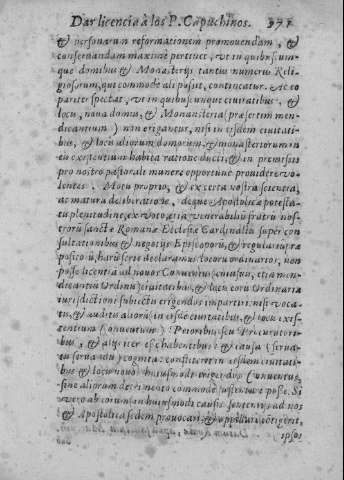 Dar licencia à los P. Capuchinos. 371
& personarum reformationem promouendam, &
conseruandam maximè pertinet, vt in quibuscum-
que domibus & Monasterijs tantus numerus Reli-
giosorum, qui commodè ali possit, contineatur. Ac eo
pariter spectat, vt in quibuscunque ciuitatibus, &
locis, noua domus, & Monasteria (præsertim men-
dicantium) non erigantur, nisi in eisdem ciuitati-
bus, & locis aliorum domorum, & monasteriorum in
eis existentium habita ratione ducti, & in præmissis
pro nostro pastorali munere opportunè prouidere vo-
lentes. Motu proprio, & ex certa nostra scientia,
ac matura deliberatione, deque Apostolicæ potesta-
tis plenitudine, ex voto etiā venerabiliū fratrū nos-
trorū sanctæ Romanæ Ecclesiæ Cardinaliū super con
sultationibus & negotijs Episcoporū, & regularium præ
positorū, harū serie declaramus locorū ordinarios, non
posse licentiā ad nouos Conuentus etiam men-
dicantiū Ordinū ciuitatibus, & locis eorū Ordinariæ
iurisdictioni subiectis erigendos impartiri: nisi voca-
tis, & auditis aliorū in eisdē ciuitatibus, & locis exis-
tentium Conuentuum Prioribus, seu Procuratori-
bus, & alijs interesse habentibus: & causa, serua-
tis seruandis, cognita: constiterit in eisdem ciuitati-
bus & locis nouos huiusmodi erigendos Conuentus,
sine aliorum detrimento commodè sustentari posse. Si
verò ab eorum in huiusmodi causis sententijs ad nos
& Apostolicam sedem prouocari & appellari cōtigerit,
ipsos